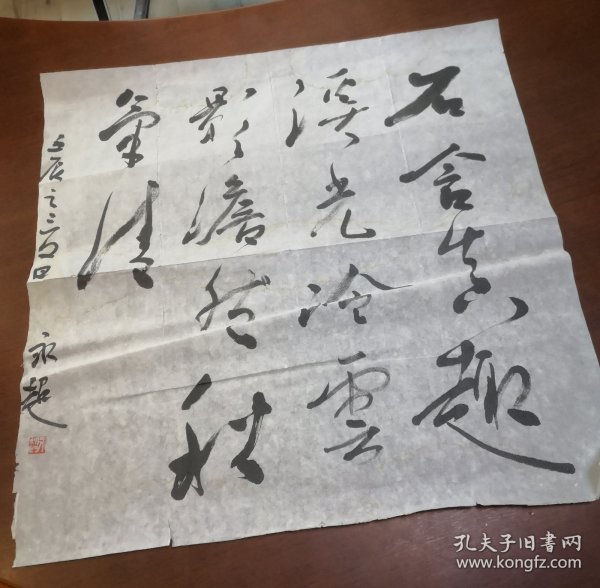 石含真趣
溪光冷雲
影澹然秋
氣清
壬辰之三日
永超
孔夫子旧书网
www.kongfz.com